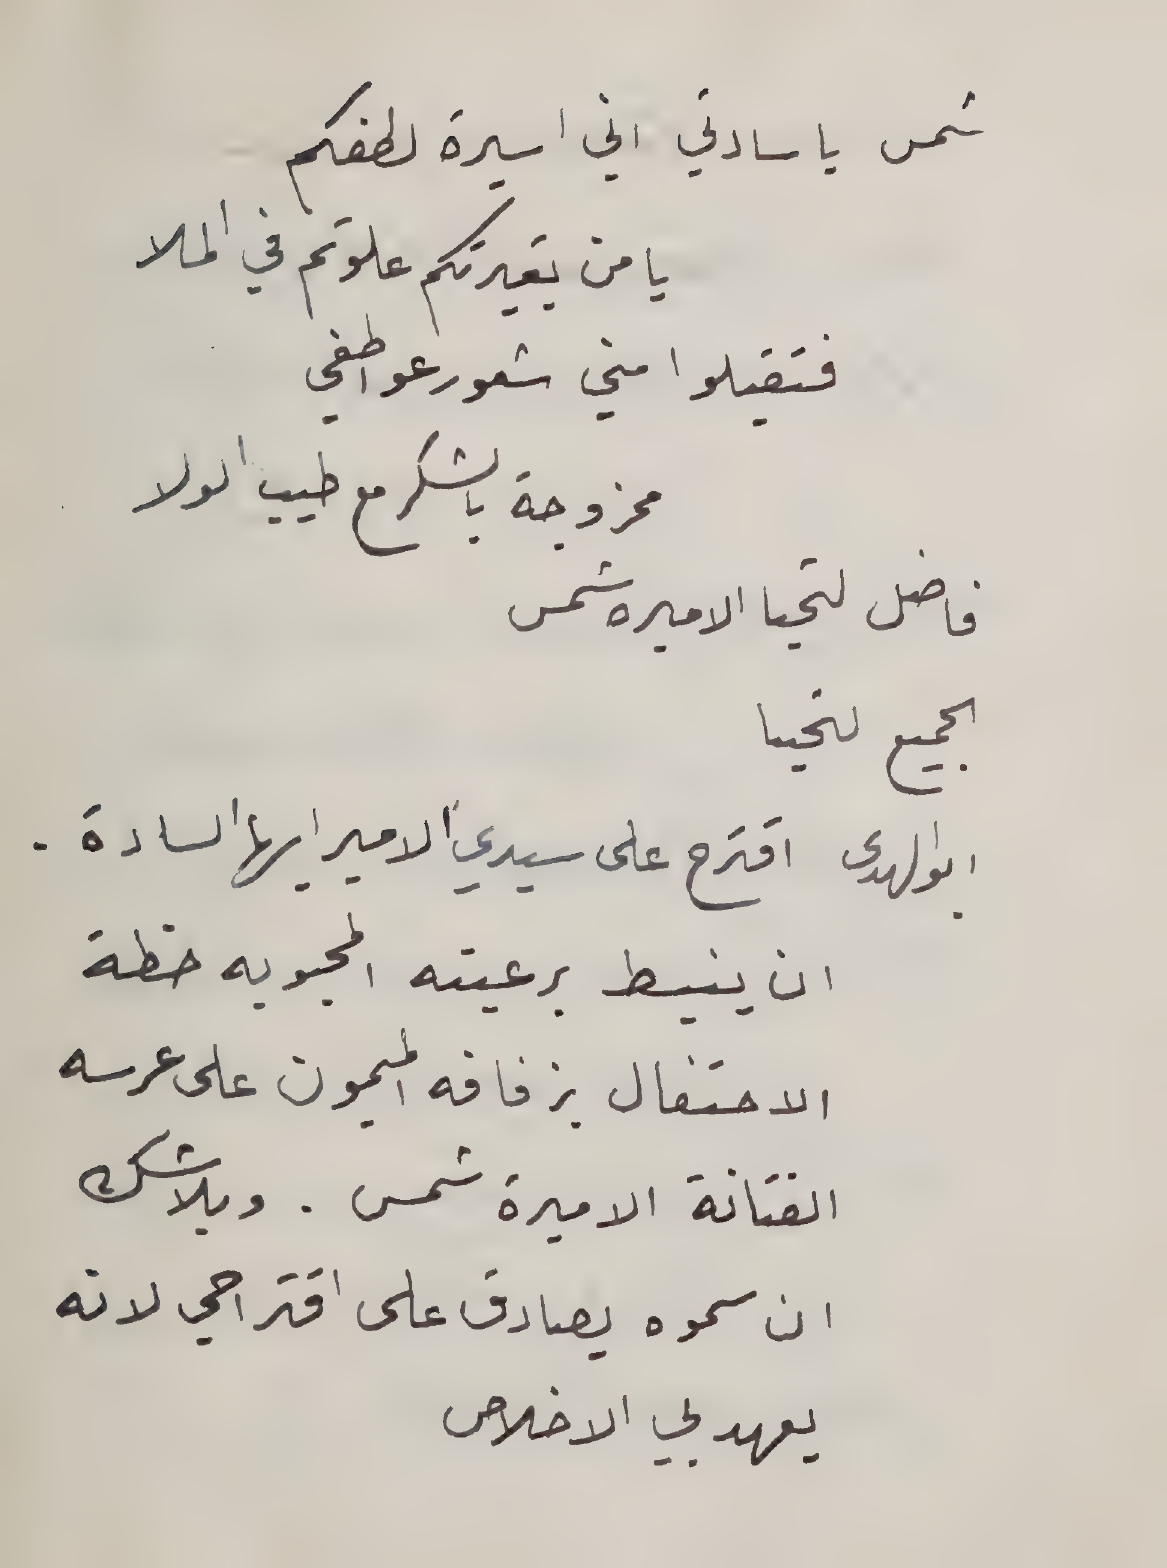 شمس ياسادتي اني اسيرة لطفكم
يا من بغيرتكم علوتم في الملا
فتقبلوا مني شعور عواطفي
ممزوجة بالشكر مع طيب الولا
فاضل لتحيا الاميره شمس
الجميع لتحيا
ابوالهدى اقترح على سيدي الامير ايها السادة .
ان ينبسط برعيته المحبوبه خطة
الاحتفال بزفافه الميمون على عرسه
الفتانة الاميرة شمس . وبلا شك
ان سموه يصادق على اقتراحي لانه
يعهد لي الاخلاص